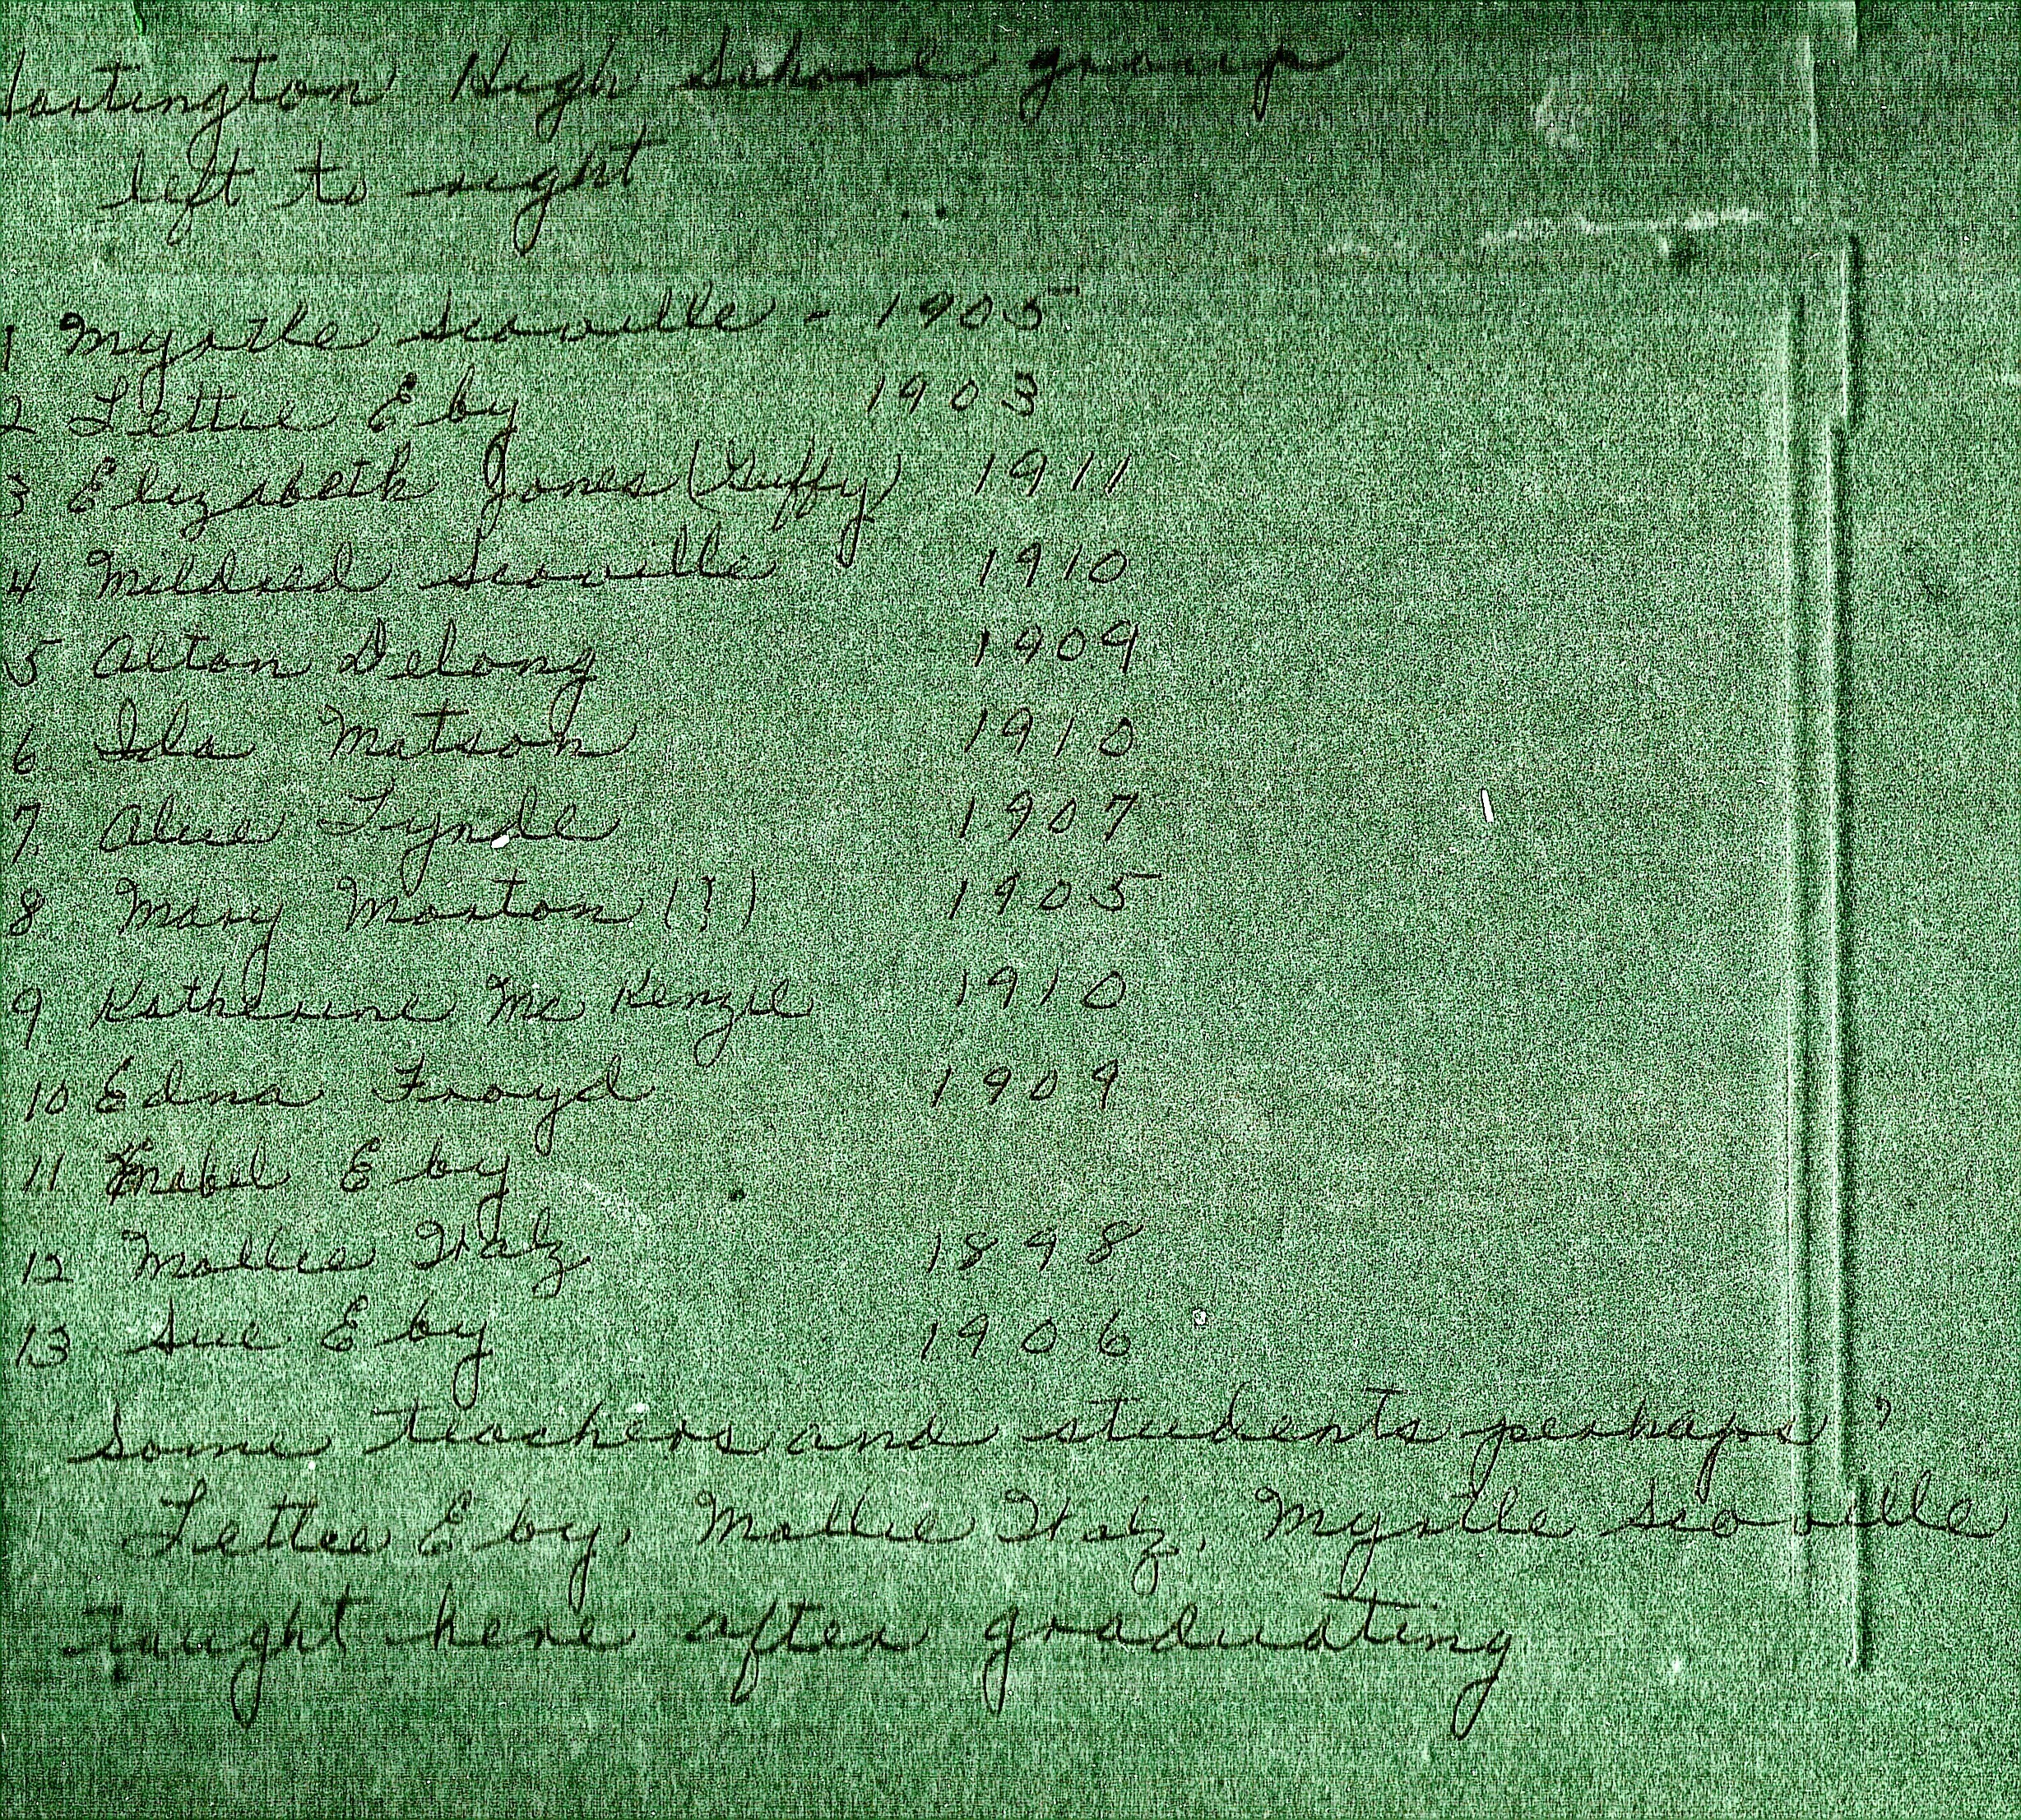 Hartington High School group
left to right
1 Myrtle Scoville - 1905
2 Lettie Eby 1903
3 Elizabeth Jones (Guffy) 1911
4 Mildred Scoville 1910
5 Alton Delong 1909
6 Ida Matson 1910
7 Alice Lynde 1907
8 Mary Morton (?) 1905
9 Katherine Mc Kenzie 1910
10 Edna Froyd 1909
11 Mabel Eby
12 Mollie 1898
13 Sue Eby 1906
Some teachers and students perhaps?
Lettie Eby, Mollie Myrtle Scoville
Taught here after graduating